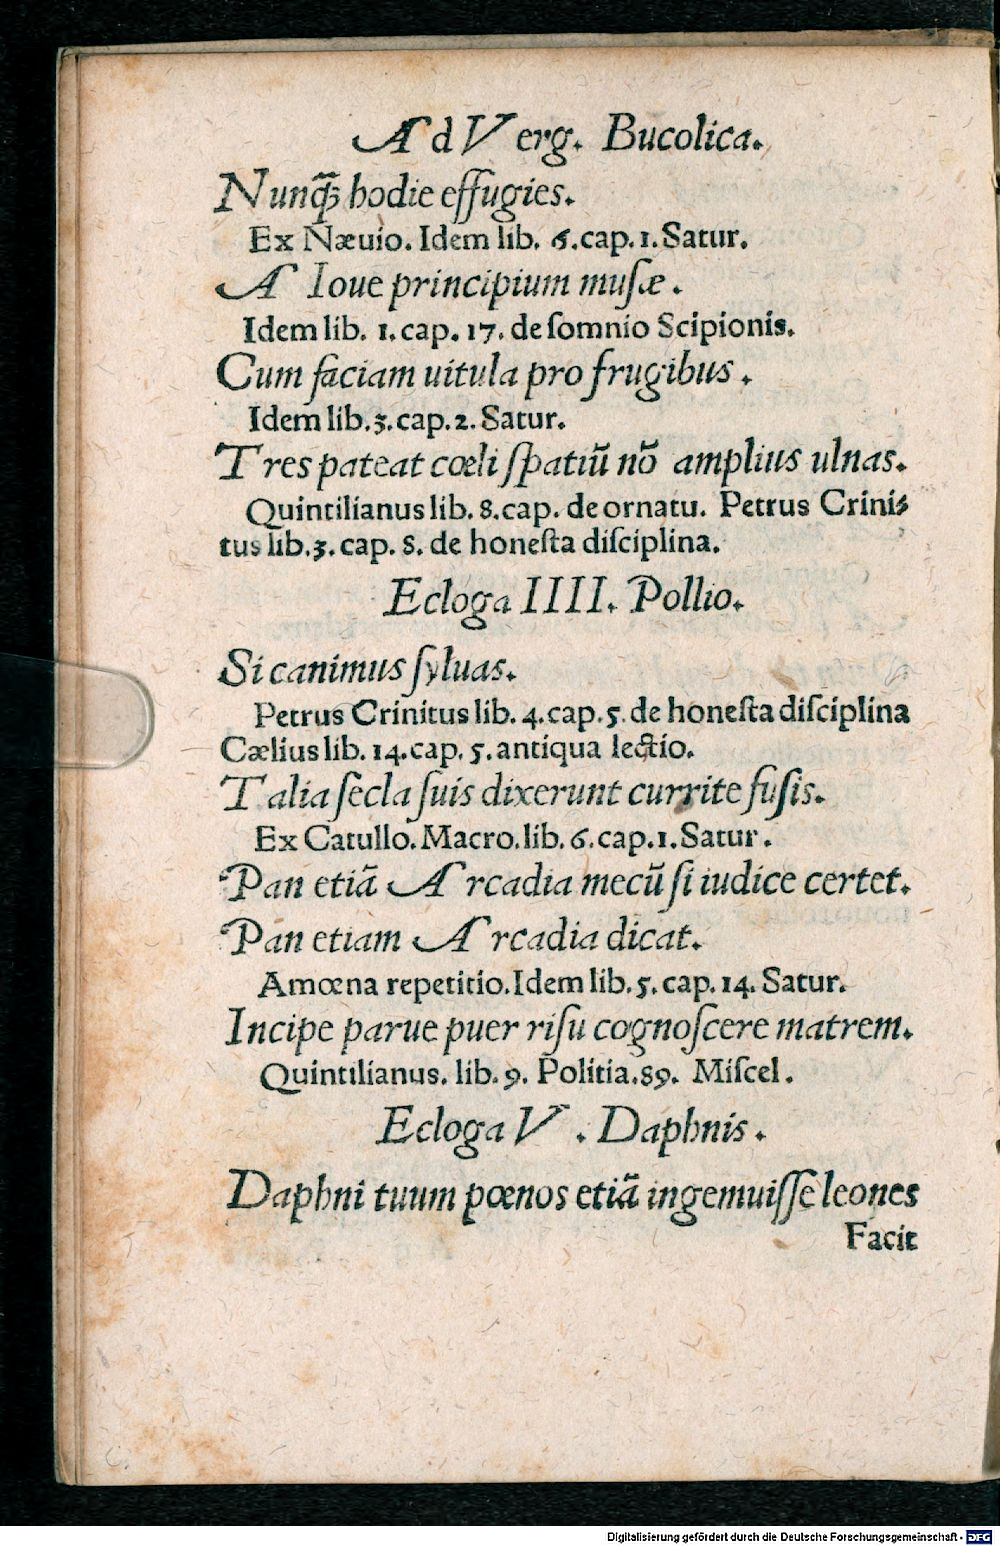 Ad Verg. Bucolica.
Nunꝗ̃ hodie effugies.
Ex Næuio. Idem lib. 6. cap. 1. Satur.
A Ioue principium musæ.
Idem lib. 1. cap. 17. de ſomnio Scipionis.
Cum faciam uitula pro frugibus.
Idem lib. 3. cap. 2. Satur.
Tres pateat cœli ſpatiũ nõ amplius ulnas.
Quintilianus lib. 8. cap. de ornatu. Petrus Crini⸗
tus lib. 3. cap. 8. de honeſta diſciplina.
Ecloga IIII. Pollio.
Si canimus ſyluas.
Petrus Crinitus lib. 4. cap. 5. de honeſta diſciplina
Cælius lib. 14. cap. 5. antiqua lectio.
Talia ſecla ſuis dixerunt currite fuſis.
Ex Catullo. Macro. lib. 6. cap. 1. Satur.
Pan etiã Arcadia mecũ ſi iudice certet.
Pan etiam Arcadia dicat.
Amœna repetitio. Idem lib. 5. cap. 14. Satur.
Incipe parue puer riſu cognoſcere matrem.
Quintilianus. lib. 9. Politia. 89. Miſcel.
Ecloga V. Daphnis.
Daphni tuum pœnos etiã ingemuiſſe leones
Facit
Digitalisierung gefördert durch die Deutsche Forschungsgemeinschaft - DFG